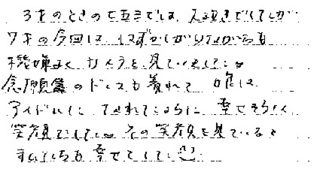 3才のときの七五三では、大泣きでしたが
7才の今回は、はずかしがりながらも
機嫌よく カメラを見ていました
念願のドレスも着れて 唯は
アイドルに なれたように 幸せそうな
笑顔でした。その笑顔を見ていると
私たちも幸せでした